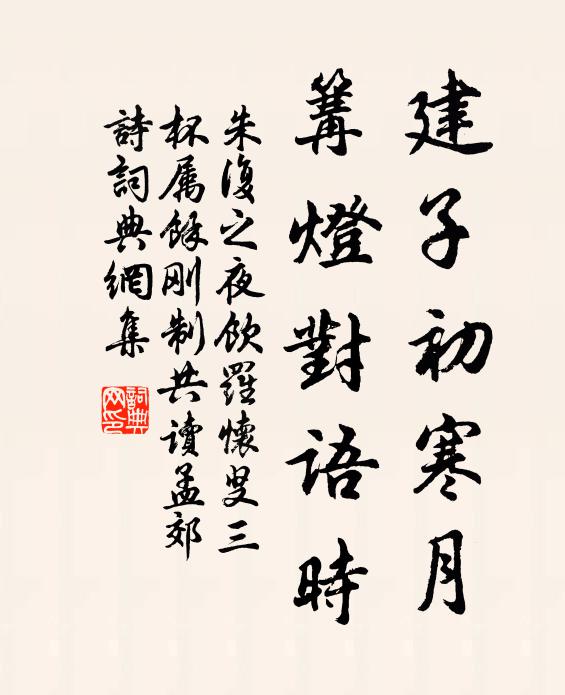 建子初寒月
篝燈對語時
朱復之夜飲羅懷叟三
杯属餘剛制共讀孟郊
詩詞典網集
詞典网印